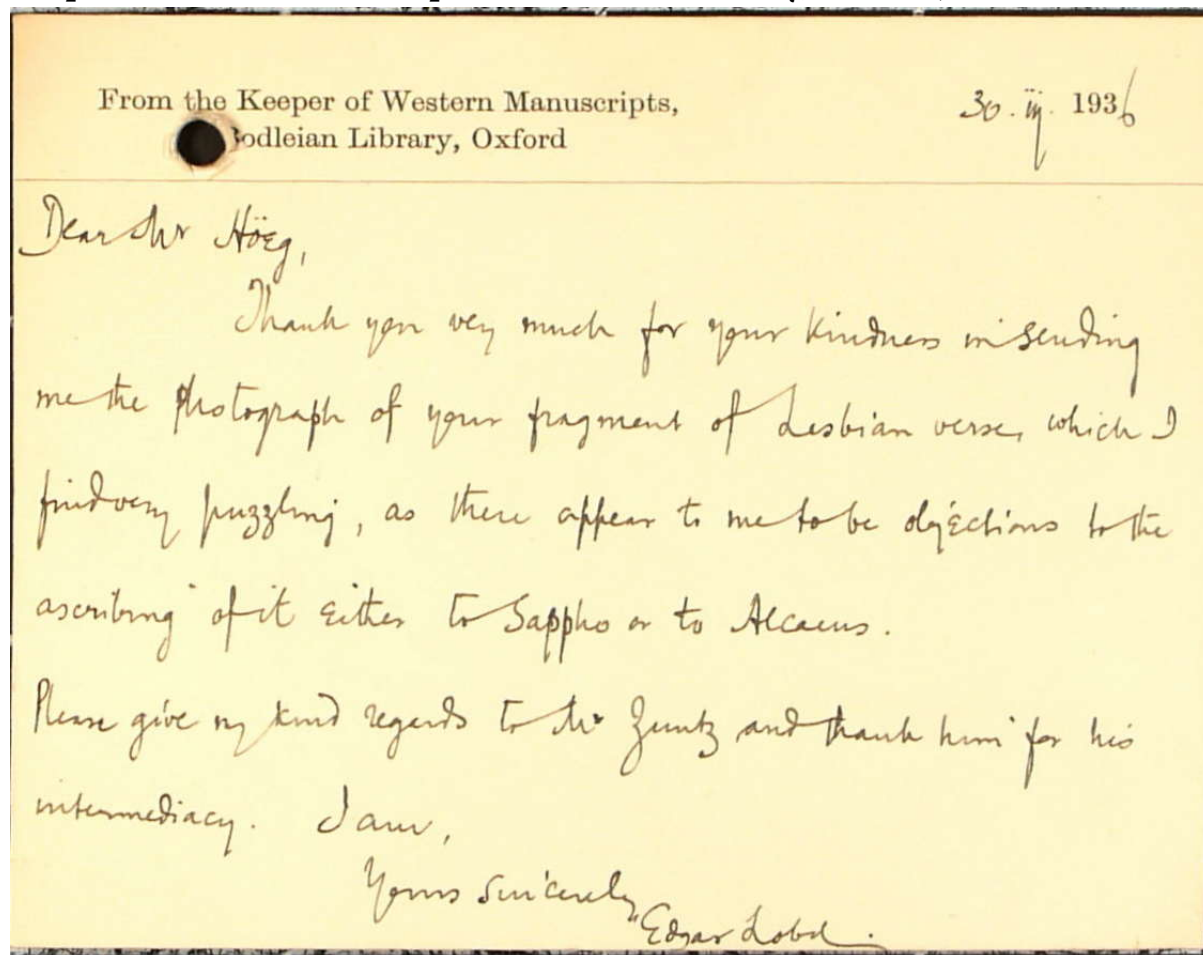 From the Keeper of Western Manuscripts,
30. iij. 1936
Bodleian Library, Oxford
Dear Mr Höeg,
Thank you very much for your kindness in sending
me the photograph of your fragment of Lesbian verse, which I
find very puzzling, as there appear to me to be objections to the
ascribing of it either to Sappho or to Alcaeus.
Please give my kind regards to Mr Zuntz and thank him for his
intermediacy. I am,
Yours sincerely
Edgar Lobel.